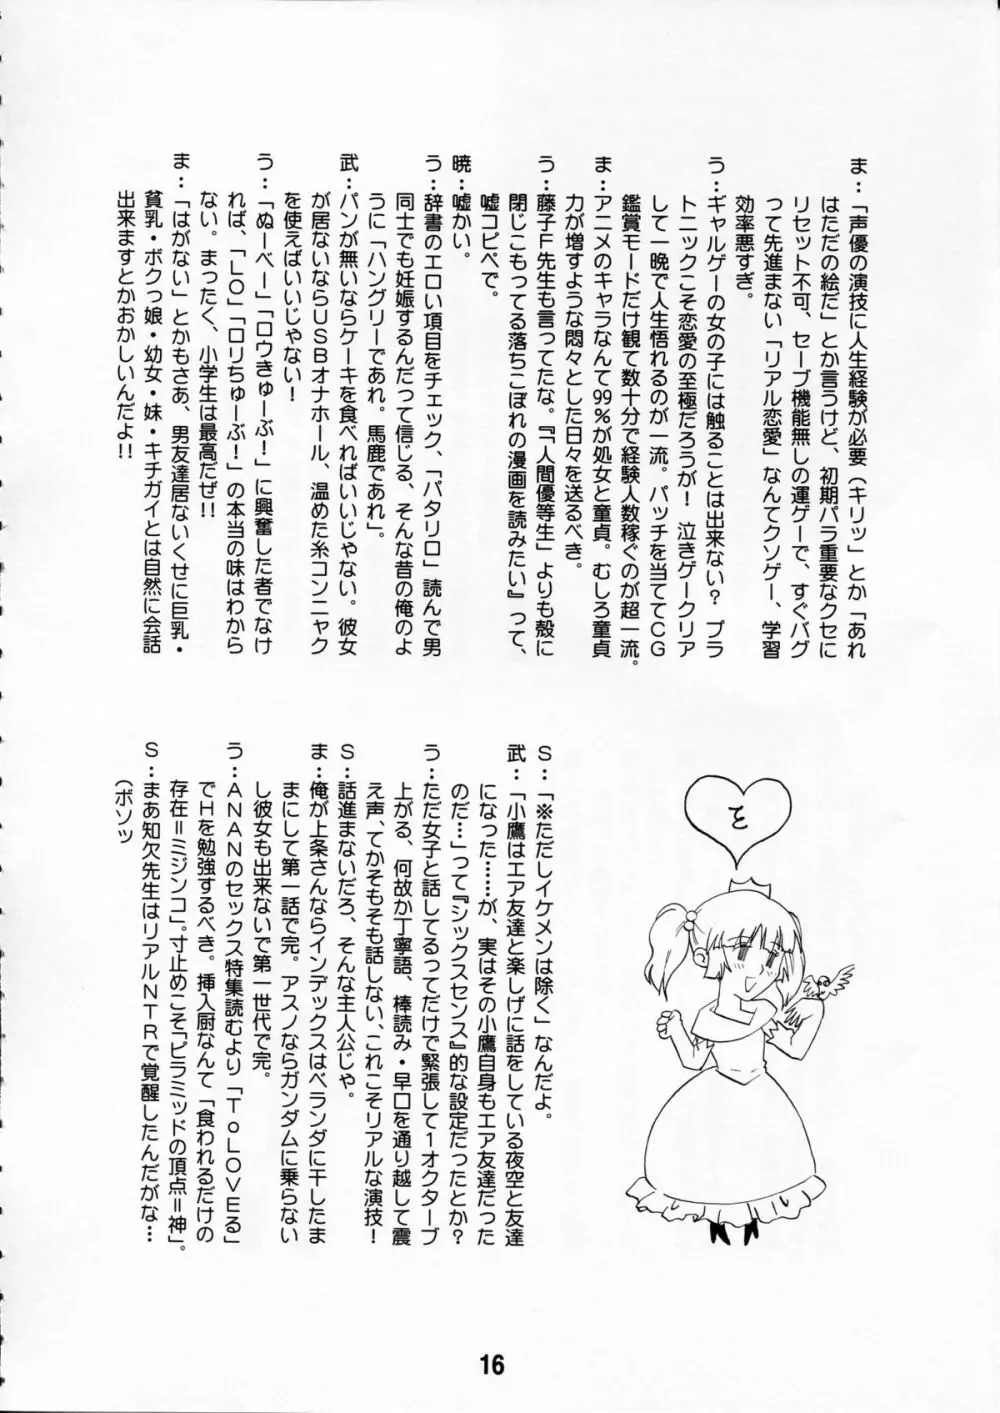 ま：「声優の演技に人生経験が必要（キリッ」とか「あれ
はただの絵だ」とか言うけど、初期パラ重要なクセに
リセット不可、セーブ機能無しの運ゲーで、すぐバグ
って先進まない「リアル恋愛」なんてクソゲー、学習
効率悪すぎ。
う：ギャルゲーの女の子には触ることは出来ない？プラ
トニックこそ恋愛の至極だろうが！ 泣きゲークリア
して一晩で人生悟れるのが一流。パッチを当ててCG
鑑賞モードだけ観て数十分で経験人数稼ぐのが超一流。
ま：アニメのキャラなんて99%が処女と童貞。むしろ童貞
力が増すような悶々とした日々を送るべき。
う：藤子F先生も言ってたな。『「人間優等生」よりも殻に
閉じこもってる落ちこぼれの漫画を読みたい』って、
嘘コピペで。
暁：嘘かい。
う：辞書のエロい項目をチェック、「パタリロ」読んで男
同士でも妊娠するんだって信じる、そんな昔の俺のよ
うに「ハングリーであれ。馬鹿であれ」。
武：パンが無いならケーキを食べればいいじゃない。彼女
が居ないならUSBオナホール、温めた糸コンニャク
を使えばいいじゃない！
う：「ぬーべー」「ロウきゅーぶ！」に興奮した者でなけ
れば、「LO」「ロリちゅーぶ！」の本当の味はわから
ない。まったく、小学生は最高だぜ!!
ま：「はがない」とかもさあ、男友達居ないくせに巨乳・
貧乳・ボクっ娘・幼女・妹・キチガイとは自然に会話
出来ますとかおかしいんだよ!!
S：「※ただしイケメンは除く」なんだよ。
武：「小鷹はエア友達と楽しげに話をしている夜空と友達
になった……が、実はその小鷹自身もエア友達だった
のだ…」って『シックスセンス』的な設定だったとか？
う：ただ女子と話してるってだけで緊張して1オクターブ
上がる、何故か丁寧語、棒読み・早口を通り越して震
え声、てかそもそも話しない、これこそリアルな演技！
S：話進まないだろ、そんな主人公じゃ。
ま：俺が上条さんならインデックスはベランダに干したま
まにして第一話で完。アスノならガンダムに乗らない
し彼女も出来ないで第一世代で完。
う：ANANのセックス特集読むより「ToLOVEる」
でHを勉強するべき。挿入厨なんて「食われるだけの
存在＝ミジンコ」。寸止めこそ「ピラミッドの頂点＝神」。
S：まあ知欠先生はリアルNTRで覚醒したんだがな…
（ボソッ
を
16